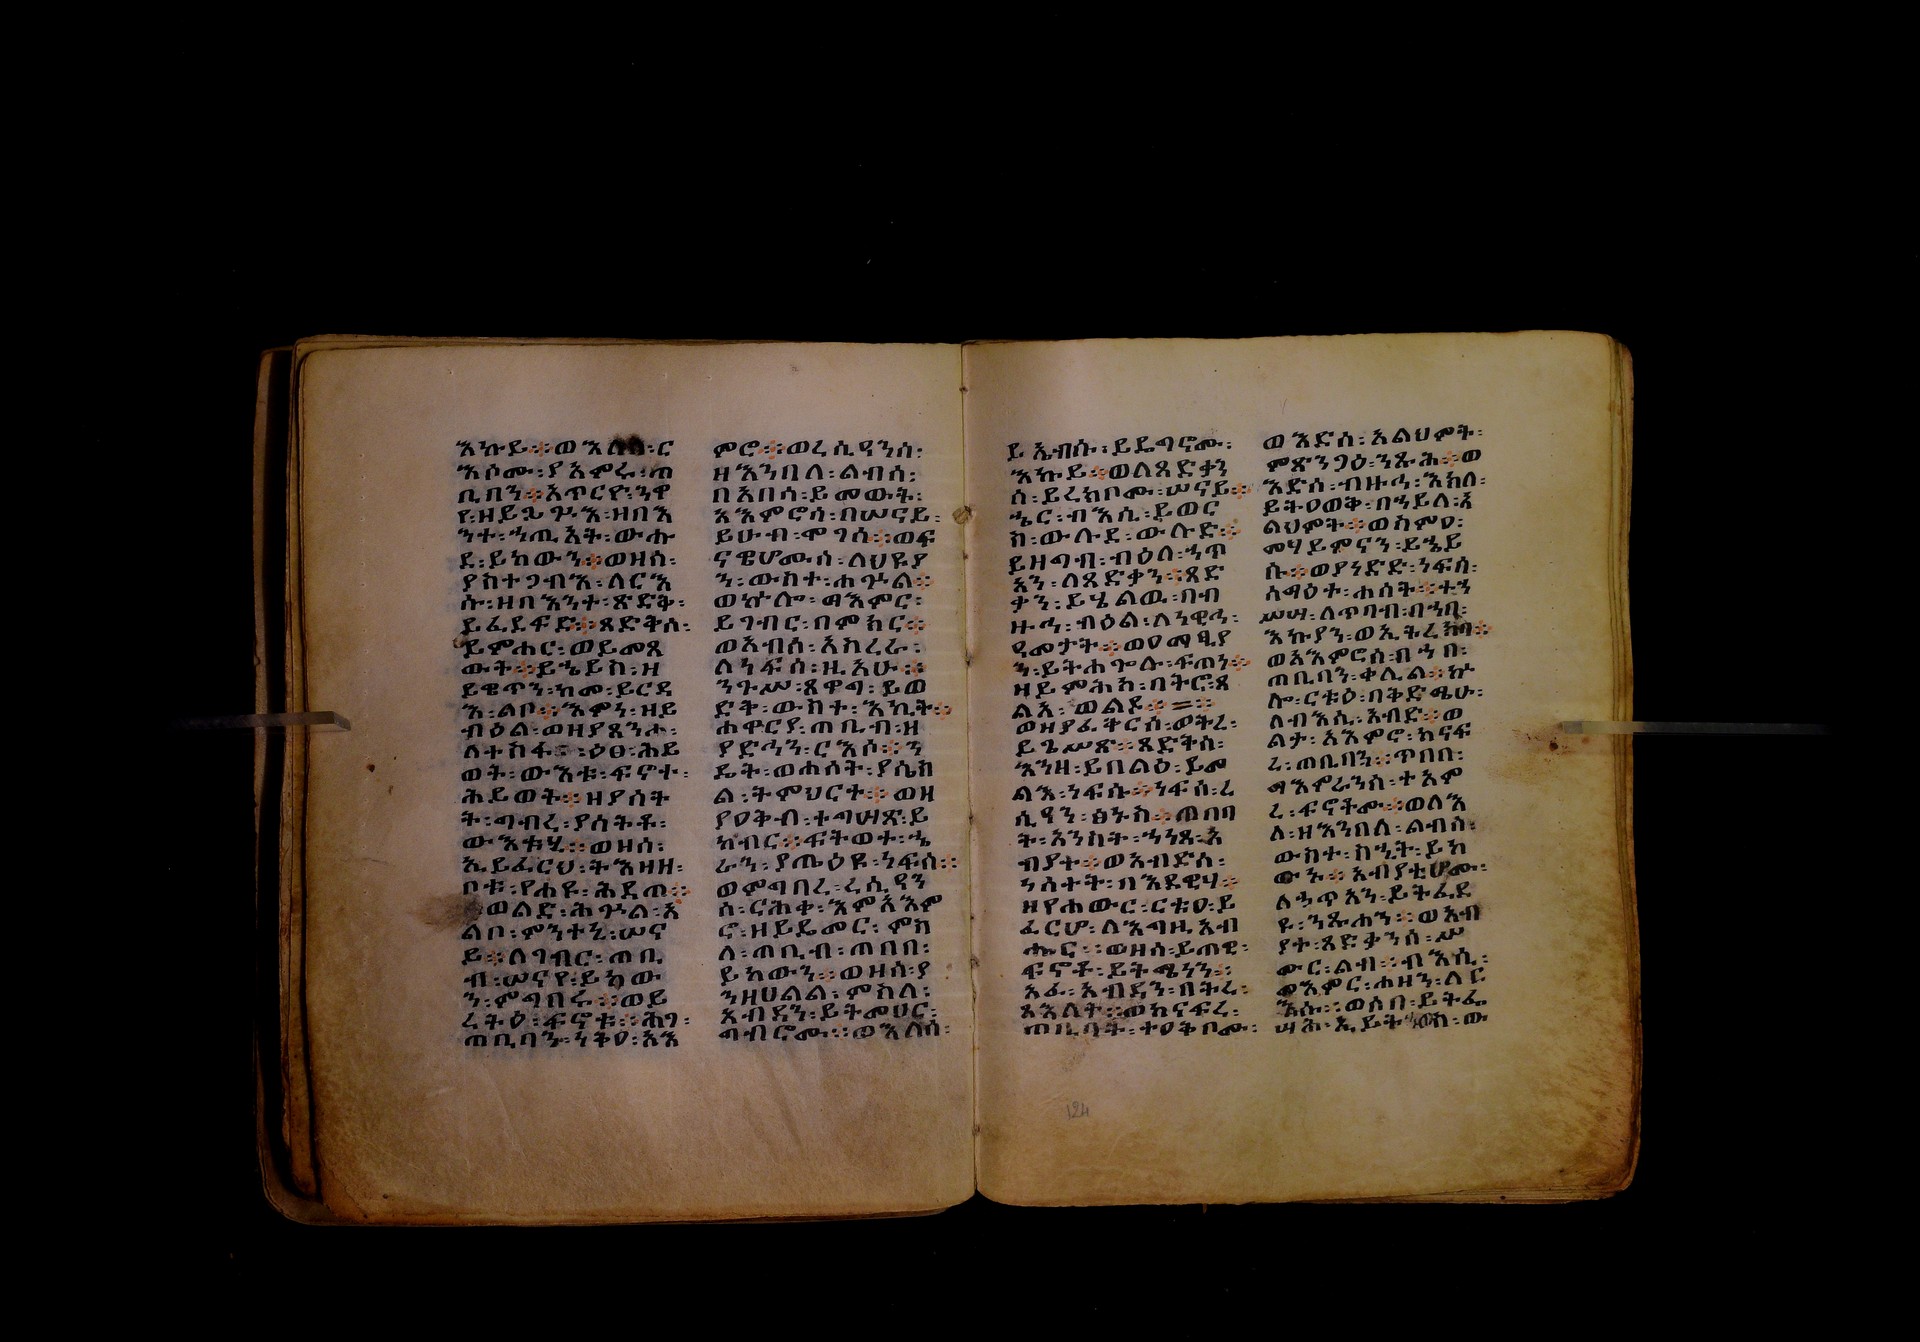 እኩይ፨ወእለ፡ር
እሶሙ፡ያአምሩ፡ጠ
ቢበን፨አጥርዮ፡ንዋ
የ፡ዘይኄሥእ፡ዘበእ
ንተ፡ኀጢአት፡ውሉ
ደ፡ይከውን፨ወዘሰ፡
ያስተጋብእ፡ለርእ
ሱ፡ዘበእንተ፡ጽድቅ፡
ይፈደፍድ፨ጻድቅሰ፡
ይምሕር፡ወይመጸ
ውት፨ይኄይስ፡ዘ
ይዌጥን፡ከመ፡ይርዳ
እ፡ልቦ፨እምነ፡ዘይ
ብዕል፡ወዘያጸንሖ፡
ለተስፋ፨ዕፀ፡ሕይ
ወት፡ውእቱ፡ፍኖተ፡
ሕይወት፨ዘያሰት
ት፡ግብረ፡ያሰትቶ፡
ውእቱሂ፨ወዘሰ፡
ኢይፈርህ፡ትእዛዘ፡
ቦቱ፡የሐዩ፡ሕይወተ፨
ወልድ፡ሕጉል፡አ
ልቦ፡ምንተኒ፡ሠና
ይ፨ለገብር፡ጠቢ
ብ፡ሠናየ፡ይከው
ን፡ምግበሩ፨ወይ
ረትዕ፡ፍኖቱ፨ሕገ፡
ጠቢባን፡ነቅዐ፡አእ
ምሮ፨ወረሲዓንሰ፡
ዘእንበለ፡ልብሰ፡
በአበሳ፡ይመውት፡
አእምሮሰ፡በሠናይ፡
ይሁብ፡ሞገሰ፨ወፍ
ናዊሆሙሰ፡ለህዩያ
ን፡ውስተ፡ሐጕል፨
ወኵሎ፡ማእምር፡
ይገብር፡በምክር፨
ወአብሰ፡አከረራ፡
ለነፍሰ፡ዚአሁ፨
ንጉሥ፡ጸዋግ፡ይወ
ድቅ፡ውስተ፡እኪት፨
ሐዋርያ፡ጠቢብ፡ዘ
ያድኅን፡ርእሶ፨ን
ዴት፡ወሐሰት፡ያሴስ
ል፡ትምህርተ፨ወዘ
ያዐቅብ፡ተግሣጽ፡ይ
ከብር፨ፍትወተ፡ኄ
ራን፡ያጤዕዩ፡ነፍሰ፨
ወምግበረ፡ረሲዓን
ሰ፡ርሑቀ፡እምአእም
ሮ፡ዘይዴመር፡ምስ
ለ፡ጠቢብ፡ጠበበ፡
ይከውን፨ወዘሰ፡ያ
ንዘህልል፡ምስለ፡
አብዳን፡ይትመሀር፡
ግብሮሙ፨ወእለሰ፡
ይኤብሱ፡ይዴግኖሙ፡
እኩይ፨ወለጻድቃን
ሰ፡ይረክቦሙ፡ሠናይ፨
ኄር፡ብእሲ፡ይወር
ስ፡ውሉደ፡ውሉድ፨
ይዘግብ፡ብዕለ፡ኀጥ
አን፡ለጻድቃን፨ጻድ
ቃን፡ይሄልዉ፡በብ
ዙኅ፡ብዕል፡ለነዊኅ፡
ዓመታት፨ወዐማፂያ
ን፡ይትሐጐሉ፡ፍጡነ፨
ዘይምሕክ፡በትሮ፡ጸ
ልአ፡ወልዱ፨
ወዘያፈቅርሰ፡ወትረ፡
ይጌሥጽ፨ጻድቅሰ፡
እንዘ፡ይበልዕ፡ይመ
ልእ፡ነፍሱ፨ነፍሰ፡ረ
ሲዓን፡ፅኑስ፨ጠበባ
ት፡አንስት፡ኀነጻ፡አ
ብያተ፨ወአብድሰ፡
ነሰተት፡በእደዊሃ፨
ዘየሐውር፡ርቱዐ፡ይ
ፈርሆ፡ለእግዚአብ
ሔር፨ወዘሰ፡ይጠዊ፡
ፍኖቶ፡ይትሜነን፨
አፈ፡አብዳን፡በትረ፡
ጽእለት፨ወከናፍረ፡
ጠቢባት፡ተዐቅቦሙ፡
ወእድሰ፡አልህምት፡
ምጽንጋዕ፡ንጹሕ፨ወ
እድሰ፡ብዙኅ፡እክለ፡
ይትዐወቅ፡በኀይለ፡አ
ልህምት፨ወስምዐ፡
መሃይምናን፡ይኄይ
ሱ፨ወያነድድ፡ነፍሰ፡
ሰማዕተ፡ሐሰት፨ተኀ
ሥሣ፡ለጥበብ፡በኀበ፡
እኩያን፡ወኢትረክባ፨
ወአእምሮሰ፡በኀበ፡
ጠቢባን፡ቀሊል፨ኵ
ሎ፡ርቱዕ፡በቅድሜሁ፡
ለብእሲ፡አብድ፨ወ
ልታ፡አእምሮ፡ከናፍ
ረ፡ጠቢባን፨ጥበበ፡
ማእምራንሰ፡ተአም
ረ፡ፍኖቶሙ፨ወለእ
ለ፡ዘእንበለ፡ልብሰ፡
ውስተ፡ስሒት፡ይከ
ውኑ፨አብያቲሆሙ፡
ለኃጥአን፡ይትፈደ
ዩ፡ንጹሐን፨ወአብ
ያተ፡ጻድቃንሰ፡ሥ
ሙር፡ልብ፨ብእሲ፡
መእምር፡ሐዘን፡ለር
እሱ፨ወሶበ፡ይትፌ
ሣሕ፡ኢይት
124